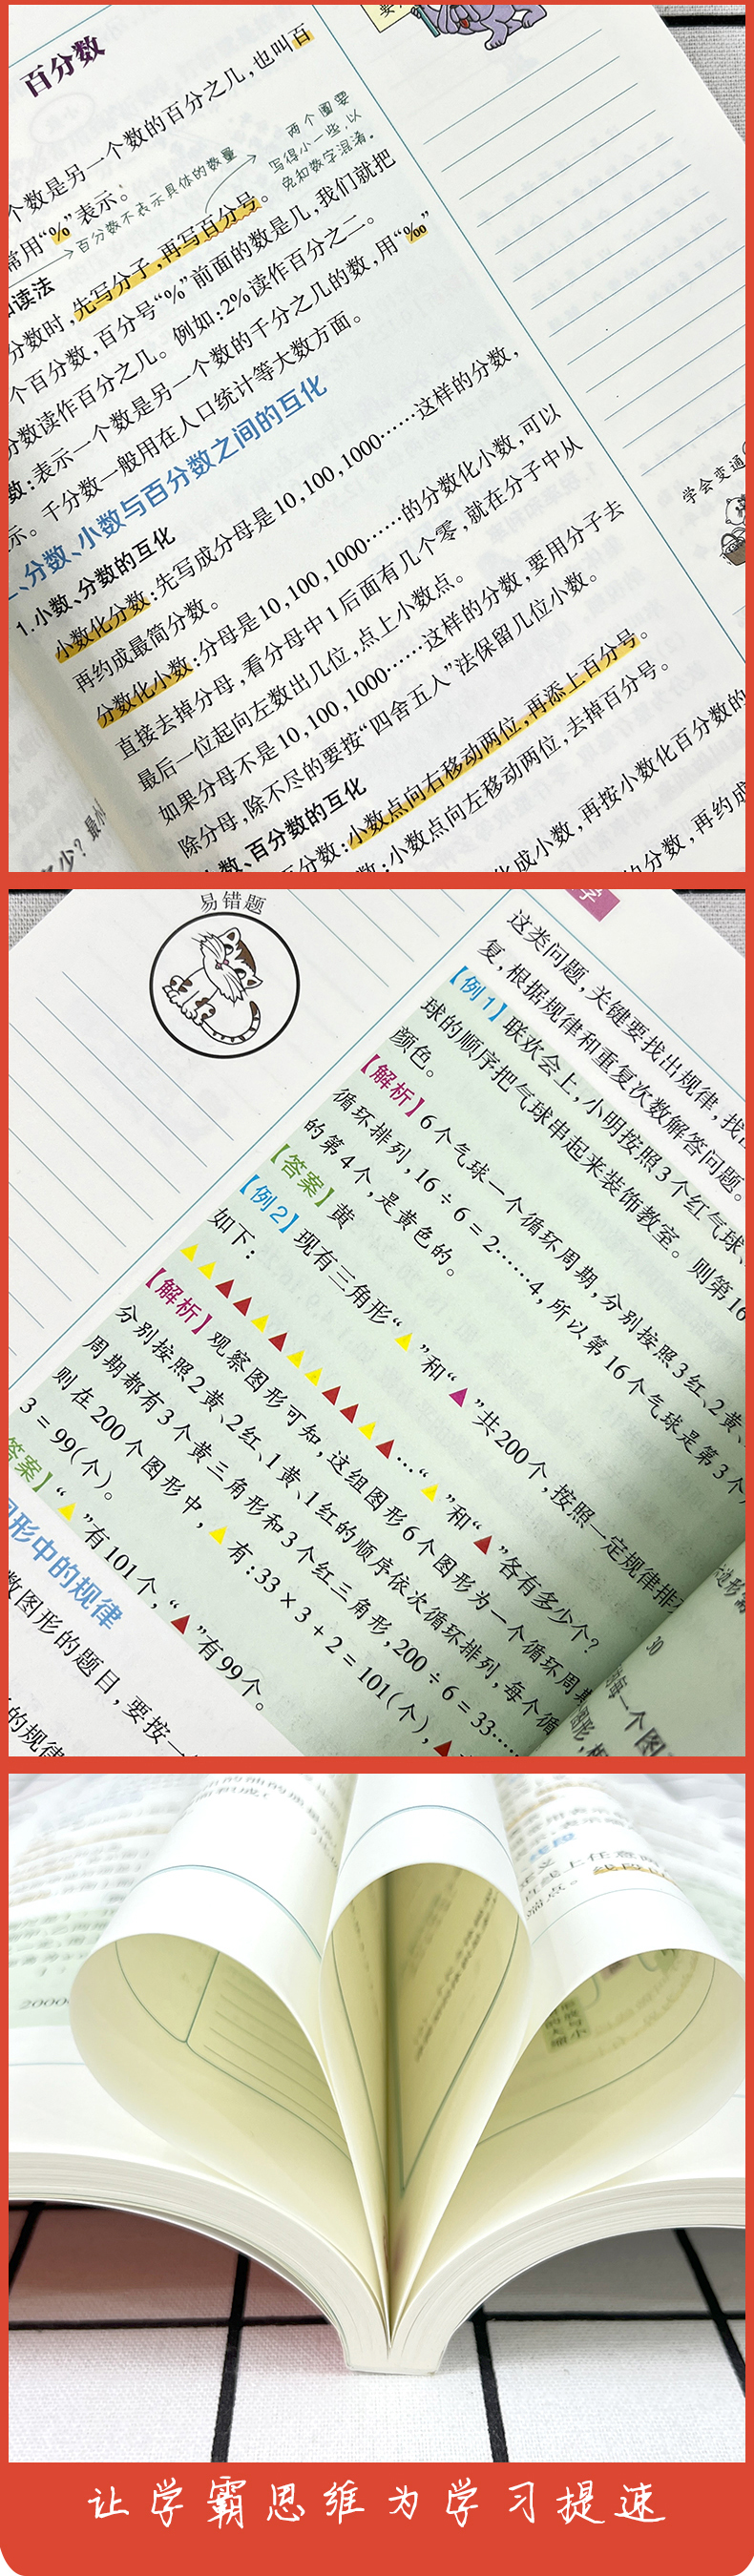 百分数
个数是另一个数的百分之几，也叫百
常用“%”表示。
百分数不表示具体的数量
两个圈要
写得小一些，以
免和数字混淆。
读法
分数时，先写分子，再写百分号。
个百分数，百分号“%”前面的数是几，我们就把
分数读作百分之几。例如：2%读作百分之二。
数：表示一个数是另一个数的千分之几的数，用“‰”
示。千分数一般用在人口统计等大数方面。
二、分数、小数与百分数之间的互化
1.小数、分数的互化
小数化分数：先写成分母是10，100，1000……这样的分数，
再约成最简分数。
分数化小数：分母是10，100，1000……的分数化小数，可以
直接去掉分母，看分母中1后面有几个零，就在分子中从
最后一位起向左数出几位，点上小数点。
如果分母不是10，100，1000……这样的分数，要用分子去
除分母，除不尽的要按“四舍五入”法保留几位小数。
数、百分数的互化
百分数：小数点向右移动两位，再添上百分号。
数：小数点向左移动两位，去掉百分号。
化成小数，再按小数化百分数的
的分数，再约成
学会变通
少？最小
易错题
字
这类问题，关键要找出规律，找
复，根据规律和重复次数解答问题。
【例1】联欢会上，小明按照3个红气球、
球的顺序把气球串起来装饰教室。则第16
颜色。
【解析】6个气球一个循环周期，分别按照3红、2黄、
循环排列，16÷6=2……4，所以第16个气球是第3个
的第4个，是黄色的。
【答案】黄
【例2】现有三角形“▲”和“▲”共200个，按照一定规律排
如下：
▲▲▲▲▲▲▲▲▲▲▲▲…“▲”和“▲”各有多少个？
【解析】观察图形可知，这组图形6个图形为一个循环周期
分别按照2黄、2红、1黄、1红的顺序依次循环排列，每个循
周期都有3个黄三角形和3个红三角形，200÷6=33……
则在200个图形中，▲有：33×3+2=101(个)，▲
3=99(个)。
答案】“▲”有101个，“▲”有99个。
图形中的规律
数图形的题目，要按一
的规律
30
每一个图
2000
让学霸思维为学习提速